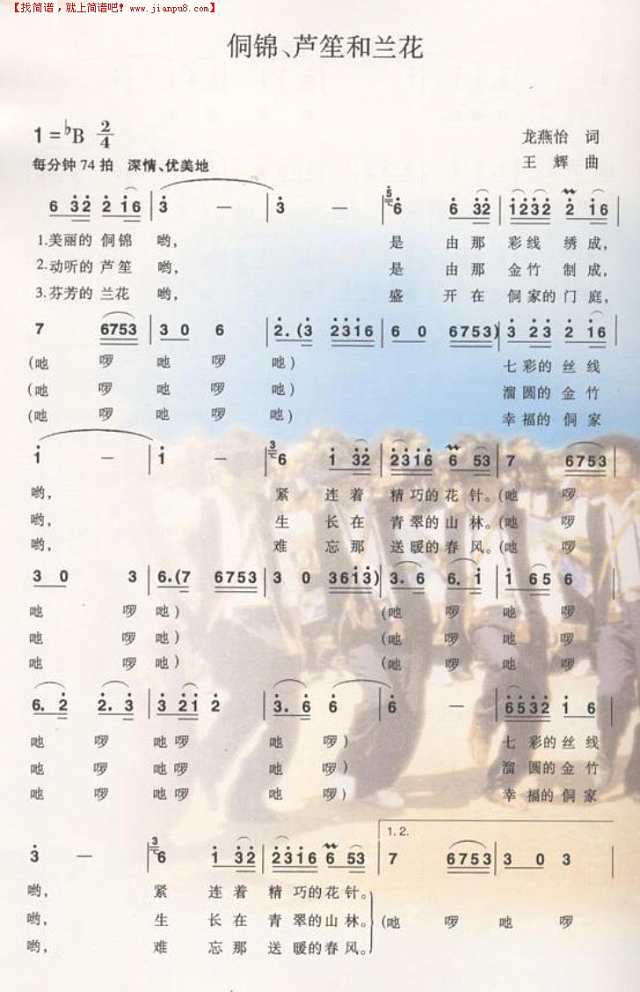 【找简谱，就上简谱吧! www.jianpu8.com】
侗锦、芦笙和兰花
1=♭B 2/4
龙燕怡 词
每分钟 74 拍 深情、优美地
王 辉 曲
6 3 2 2 1 6 3 — 3 — 6 6 3 2 1 2 3 2 2 1 6
1.美丽的 侗锦 哟, 是 由那 彩线 绣成,
2.动听的 芦笙 哟, 是 由那 金竹 制成,
3.芬芳的 兰花 哟, 盛 开在 侗家的 门庭,
7 6753 3 0 6 2.(3 2316 6 0 6753) 3 2 3 2 1 6
(吔 啰 吔 啰 吔) 七 彩的 丝线
(吔 啰 吔 啰 吔) 溜 圆的 金竹
(吔 啰 吔 啰 吔) 幸 福的 侗家
1 — 1 — 3 6 1 3 2 2 3 1 6 6 5 3 7 6753
哟, 紧 连着 精巧的 花针。(吔 啰
哟, 生 长在 青翠的 山林。(吔 啰
哟, 难 忘那 送暖的 春风。(吔 啰
3 0 3 6.(7 6753 3 0 3613) 3. 6 6. 1 1 6 5 6
吔 啰 吔) (吔 啰 吔 啰
吔 啰 吔) (吔 啰 吔 啰
吔 啰 吔) (吔 啰 吔 啰
6. 2 2. 3 3 2 1 2 3. 6 6 6 — 6532 1 6
吔 啰 吔 啰 吔 啰) 七 彩的 丝线
吔 啰 吔 啰 吔 啰) 溜 圆的 金竹
吔 啰 吔 啰 吔 啰) 幸 福的 侗家
1. 2.
3 — 3 6 1 3 2 2 3 1 6 6 5 3 7 6753 3 0 3
哟, 紧 连着 精 巧的 花针。
哟, 生 长在 青 翠的 山林。 (吔 啰 吔 啰
哟, 难 忘那 送 暖的 春风。